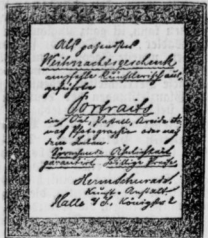 Als passendstes
Weihnachtsgeschenk
empfehle künstlerisch aus-
geführte
Portraits
in Oel, Pastell, Kreide etc.
nach Photographie oder nach
dem Leben.
Sprechende Aehnlichkeit
garantirt. Billige Preise
Herm. Schwarz
Kunst-Anstalt
Halle a/S. Königstr. 2